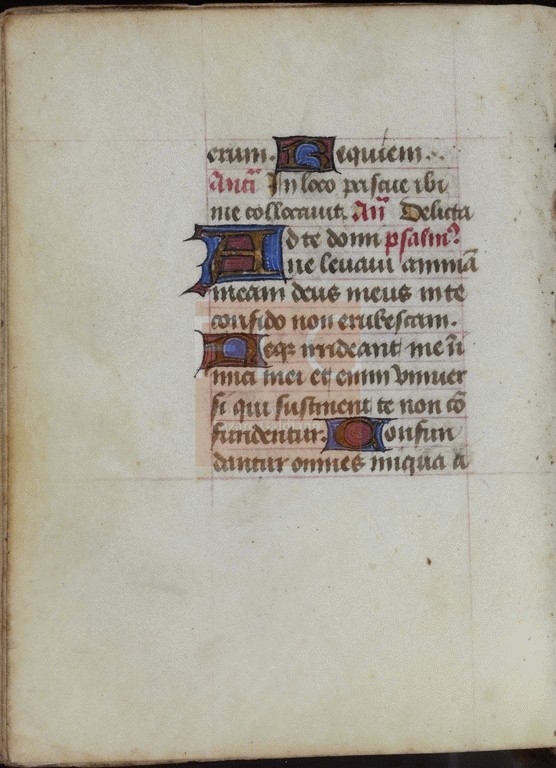 erum. Requiem.
Anti̅ In loco pascue ibi
me collocauit. An̅ Delicta
Ad te domi psalm9
ne leuaui animā
meam deus meus in te
confido non erubescam.
Neqz irrideant me īi
mici mei et enim vniuer
si qui sustinent te non cō
fundentur. Confun
dantur omnes iniqua a